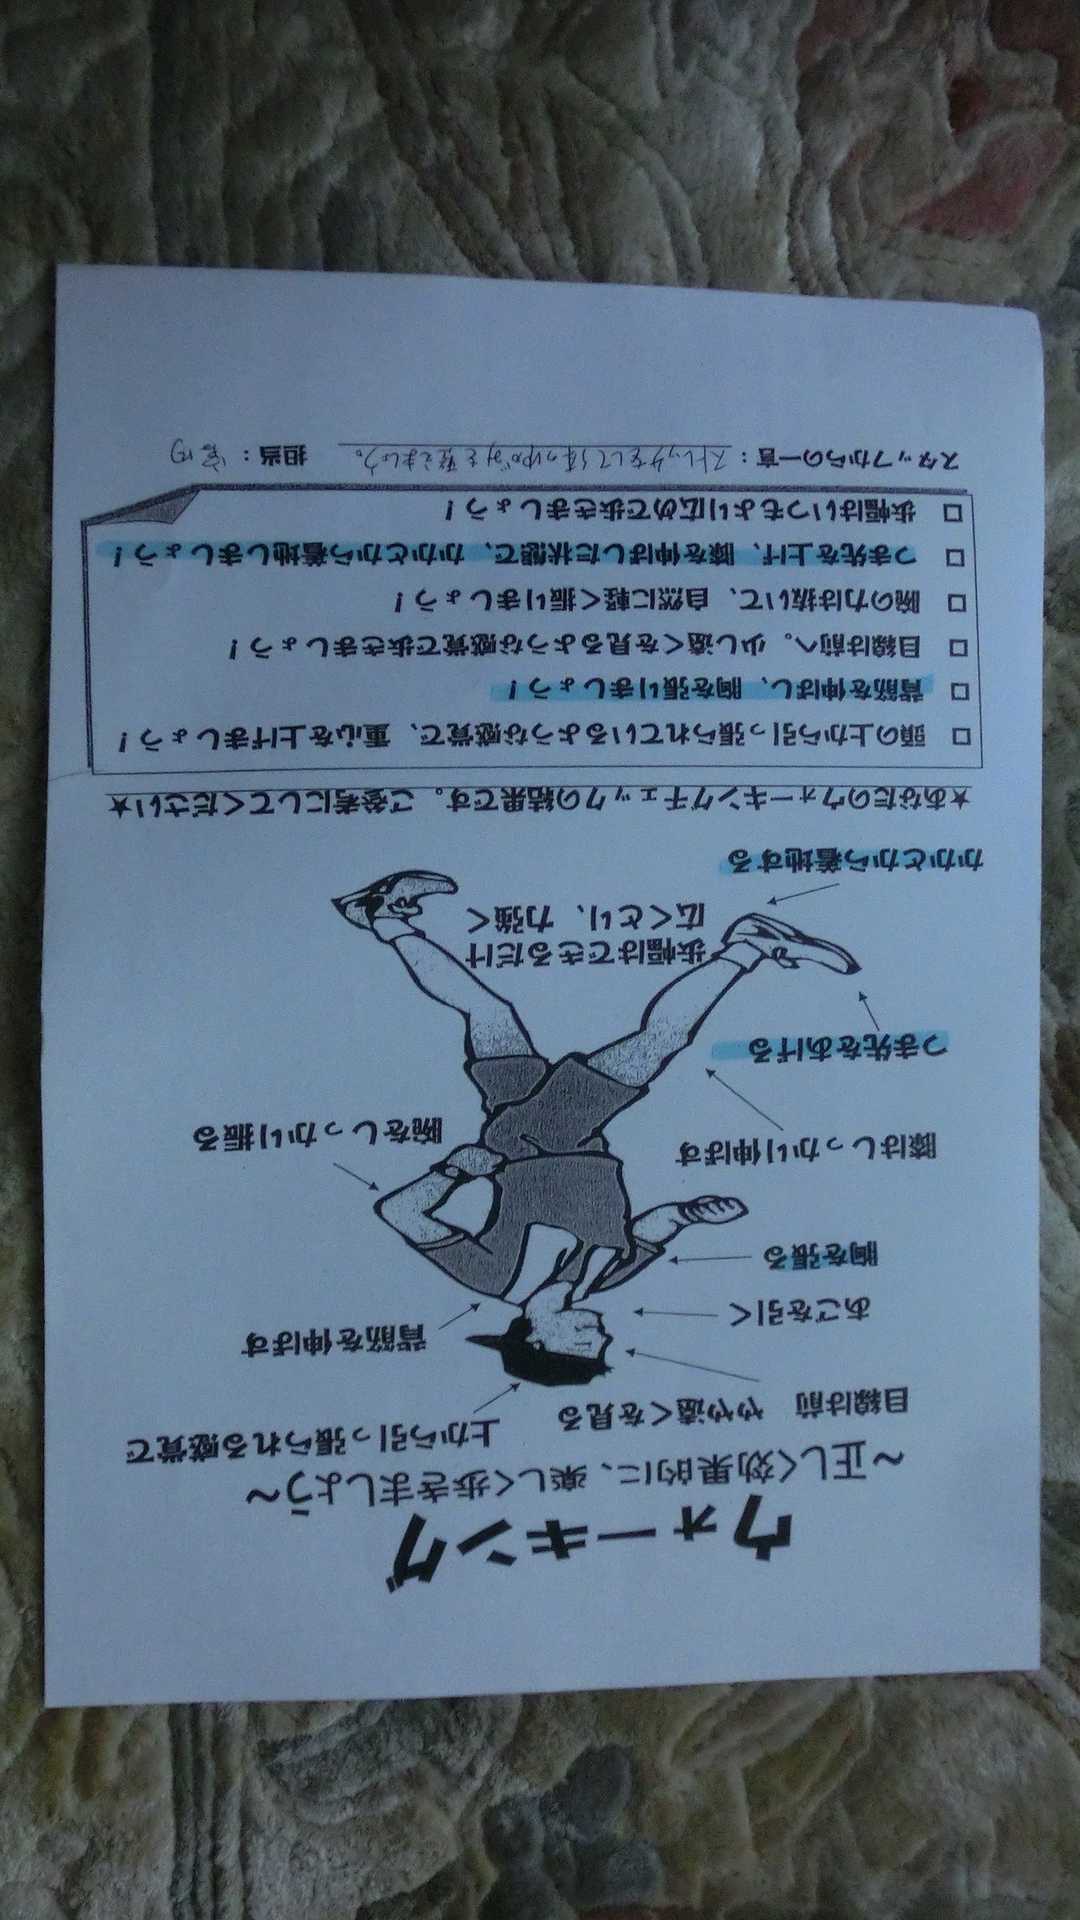 ウォーキング
～正しく効果的に、楽しく歩きましょう～
上から引っ張られる感覚で
目線は前　やや遠くを見る
背筋を伸ばす
あごを引く
胸を張る
腕をしっかり振る
膝はしっかり伸ばす
つま先をあげる
歩幅はできるだけ
広くとり、力強く
かかとから着地する
★あなたのウォーキングチェックの結果です。ご参考にしてください★
□ 頭の上から引っ張られているような感覚で、重心を上げましょう！
□ 背筋を伸ばし、胸を張りましょう！
□ 目線は前へ。少し遠くを見るような感覚で歩きましょう！
□ 腕の力は抜いて、自然に軽く振りましょう！
□ つま先を上げ、膝を伸ばした状態で、かかとから着地しましょう！
□ 歩幅はいつもより広めで歩きましょう！
スタッフからの一言：ストレッチをして体のゆがみを整えましょう。 担当：